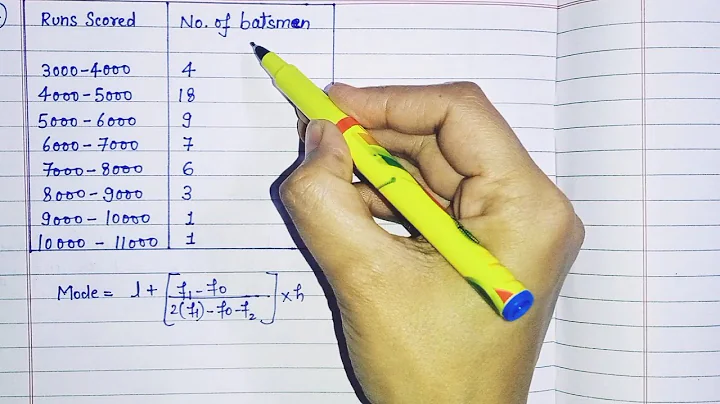 Runs Scored No. of batsmen
3000-4000 4
4000-5000 18
5000-6000 9
6000-7000 7
7000-8000 6
8000-9000 3
9000-10000 1
10000-11000 1
Mode = l + [ f1 - f0 / 2(f1) - f0 - f2 ] × h